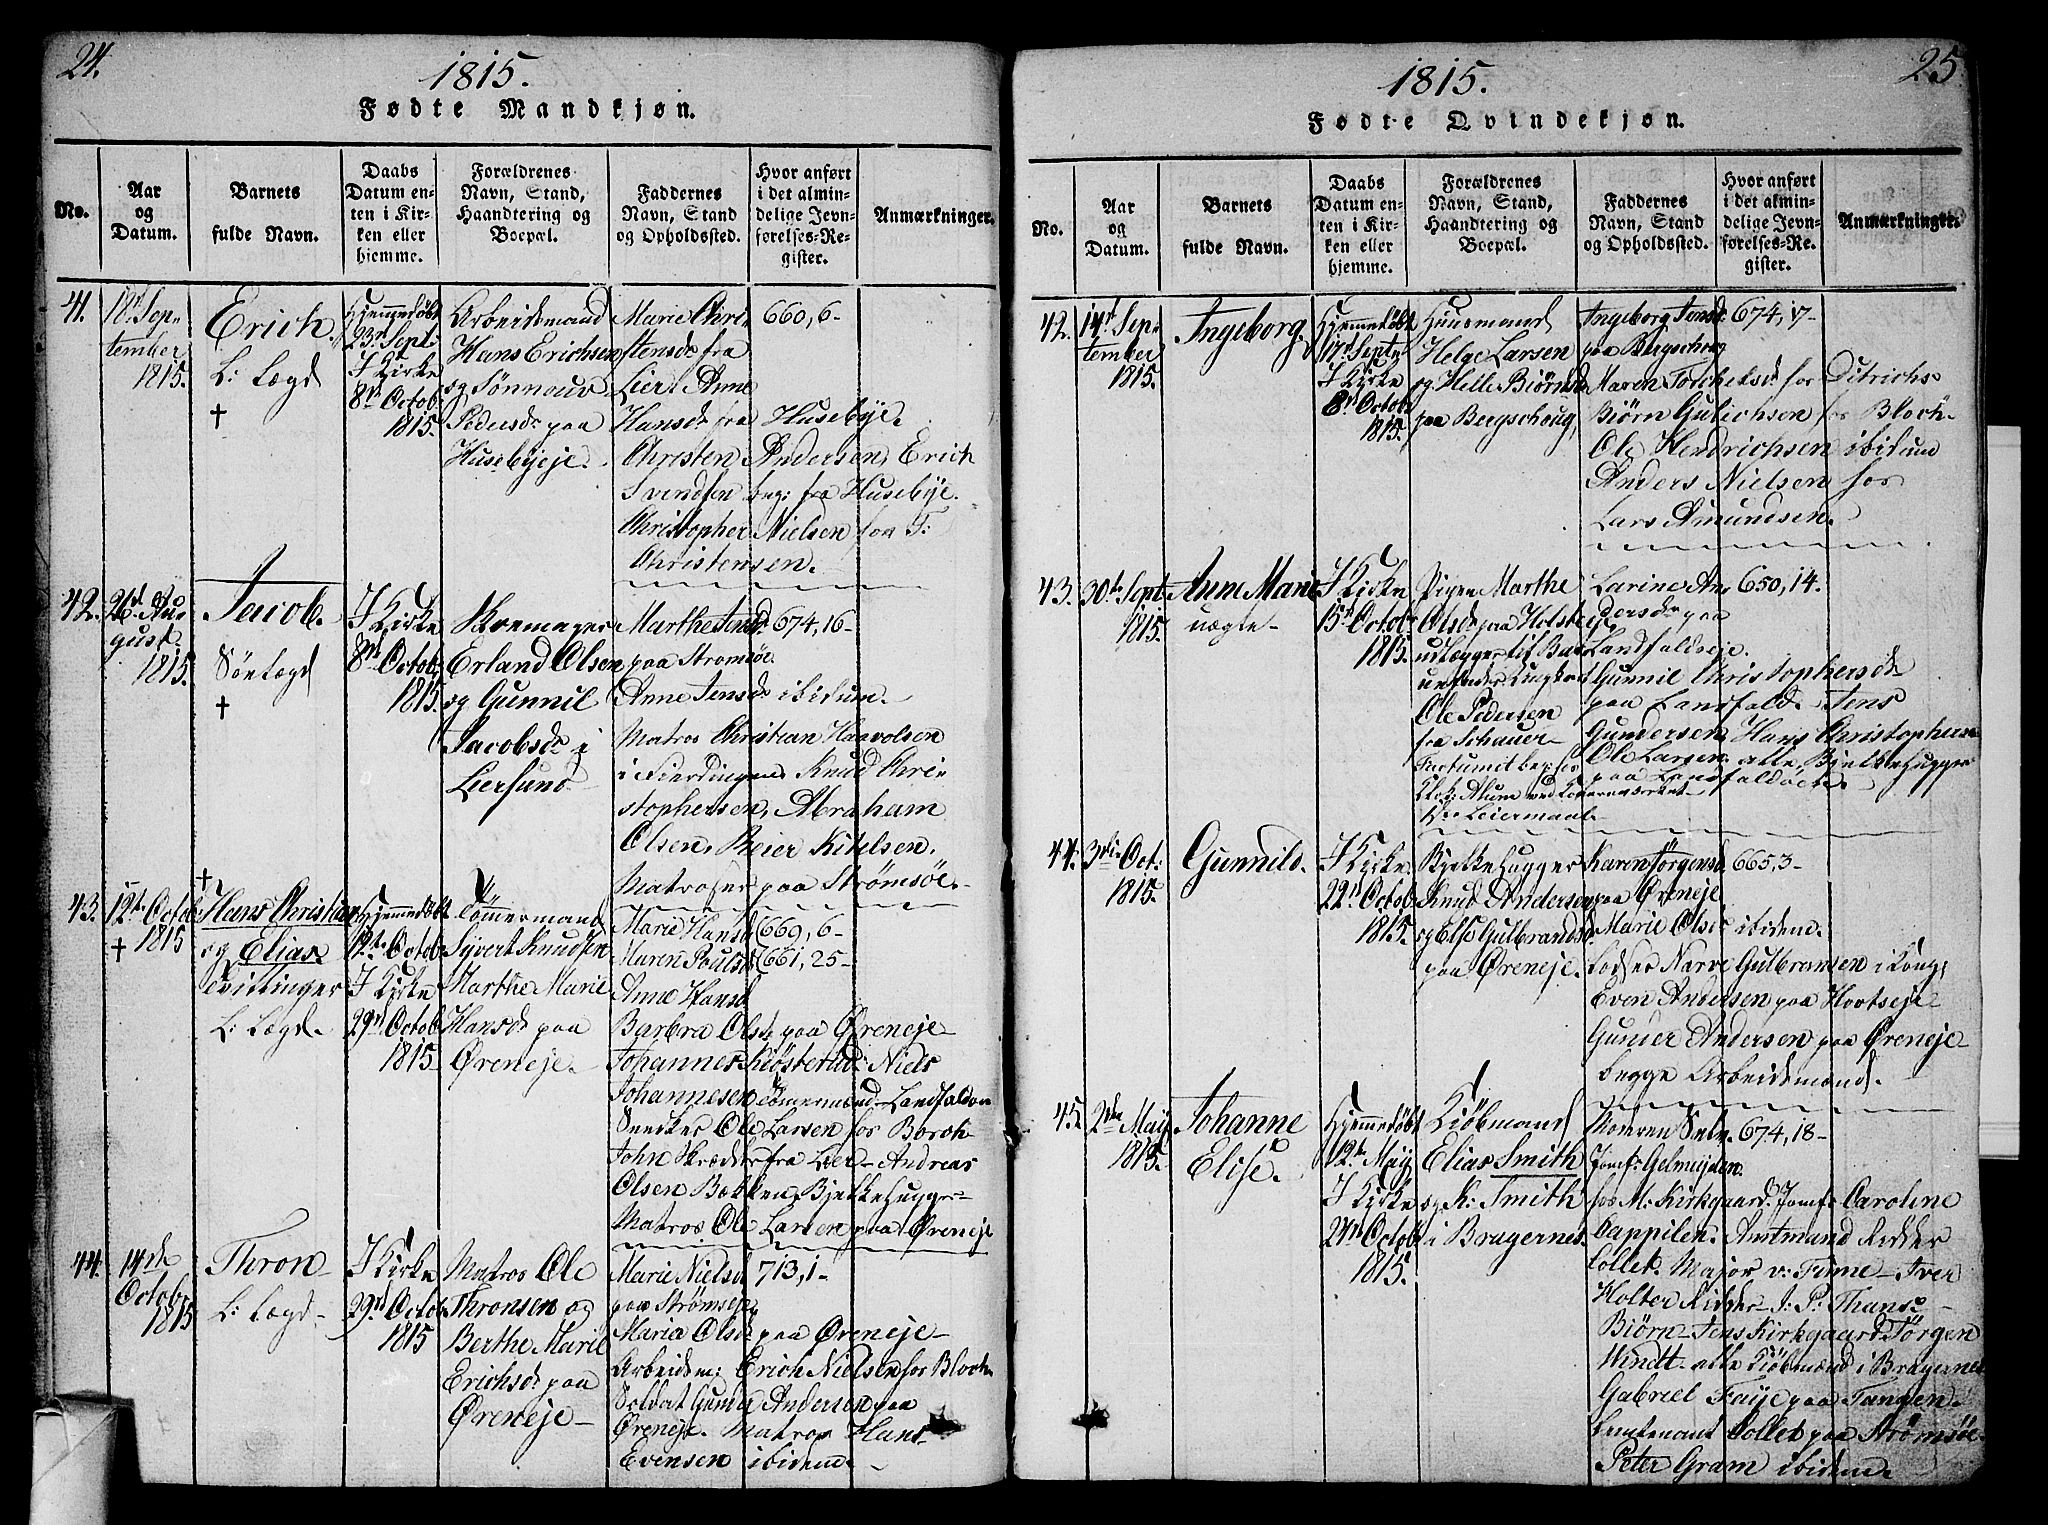 24.
1815.
Fødte Mandkjøn.
No.
Aar
og
Datum.
Barnets
fulde Navn.
Daabs
Datum en-
ten i Kir-
ken eller
hjemme.
Forældrenes
Navn, Stand,
Haandtering og
Boepæl.
Faddernes
Navn, Stand
og Opholdssted.
Hvor anført
i det almin-
delige Jevn-
førelses-Re-
gister.
Anmærkninger.
41.
18de Sep-
tember
1815.
Erich.
L: Lægd
†
Hjemmedøbt
23de Septr
I Kirke
8de Octob:
1815.
Arbeidsmand
Hans Erichsen
og Sønnouv
Pedersdr paa
Husebyeje.
Marie Chri-
stensdr fra
Lier. Anne
Hansdr fra Husebye.
Christen Andersen, Erich
Svendsen beg: fra Husebye.
Christopher Nielsen for T:
Christensen.
660, 6-
42.
26de Au-
gust.
1815.
Jacob.
Sønlægd
†
I Kirke
8de Octob:
1815.
Skoemager
Erland Olsen
og Gunnil
Jacobsdr i
Liersund.
Marthe Jensd.
paa Strømsøe
Anne Jensdr ibidum.
Matros Christian Haavolsen
i Fierdingen. Knud Chri-
stophersen, Abraham
Olsen. Peier Kitelsen.
Matroser paa Strømsøe.
674, 16-
43.
12te Octob:
† 1815
†
Hans Christian
og Elias
Tvillinger
L: Lægd.
Hjemmedøbt
12te Octob:
I Kirke
29de Octob:
1815.
Tømmermand
Syvert Knudsen
Marthe Marie
Hansdr paa
Øreneje.
Marie Hansd.
Maren Poulsd.
Anne Hansd.
Barbra Olsdr paa Øreneje
Johannes Kiøsterud. Niels
Johannesen Tømermænd Landfaldøe
Sneeker Ole Larsen for Borch
John Skrædder fra Lier - Andreas
Olsen Bakken Bjelkehugger
Matros Ole Larsen paa Øreneje
669, 6-
661, 25-
44.
14de
Octobr
1815
Thron
L: Lægd-
I Kirke
29de Octob:
1815
Matros Ole
Thronsen og
Berthe Marie
Erichsdr paa
Øreneje-
Marie Nielsd
paa Strømsøe
Maria Olsdr paa Øreneje-
Arbeidsm: Erich Nielsen for Bloch
Soldat Gunder Andersen paa
Øreneje. Matros Hans
Evensen ibidem.
713, 1-
25.
1815.
Fødte Qvindekjøn.
No.
Aar
og
Datum.
Barnets
fulde Navn.
Daabs
Datum en-
ten i Kir-
ken eller
hjemme.
Forældrenes
Navn, Stand,
Haandtering og
Boepæl.
Faddernes
Navn, Stand
og Opholdssted.
Hvor anført
i det almin-
delige Jevn-
førelses-Re-
gister.
Anmærkninger.
42.
14de Sep-
tember
1815.
Ingeborg.
Hjemmedøbt
17de Septr
I Kirke
8de Octob:
1815.
Huusmand
Helge Larsen
og Helle Biørnsd.
paa Bergschoug,
Ingeborg Jensd.
paa Bergschoug
Maren Torchelsdr for Ditrichs
Biørn Gulichsen for Bloch.
Ole Hendrichsen ibidum
Anders Nielsen for
Lars Amundsen.
674, 17-
43.
30te Sept
1815.
Anne Marie
uægte-
I Kirke
15de Octob:
1815.
Pigen Marthe
Olsdr paa Holsteje
udlægger til Bar-
Ole Pedersen
fra Schauer
Leiermaal.
Larine An-
dersdr paa
Landfaldeje.
Gunnil Christophersdr
paa Landfald. Jens
Gundersen, Hans Christophersen
Ole Larsen. alle Bjelkehugger
paa Landfaldøen.
650, 14.
44.
3die Oct:
1815.
Gunnild.
I Kirke
22de Octob:
1815.
Bjelkehugger
Knud Andersen
og Else Gulbrandsd.
paa Øreneje.
Karen Jørgensd.
paa Øreneje
Marie Olsdr ibidem.
Lodser Narve Gulbransen i Kong:
Even Andersen paa Hvotseje
Gunder Andersen paa Øreneje
begge Arbeidsmænd.
665, 3-
45.
2den May
1815.
Johanne
Elise.
Hjemmedøbt
12te May
I Kirke
24de Octob:
1815.
Kiøbmand
Elias Smith
og K: Smith
i Bragernes.
Moeren Selv.
Jomf: Gelmeyden.
for M: Kirkgaard. Jomf: Caroline
Cappelen. Amtmand Ridder
Collet. Major v: Finne - Iver
Holter Ridder - J: P: Thams-
Biørn - Jens Kirkgaard Jørgen
Windt. alle Kiøbmænd i Bragernes
Gabriel Faye paa Tangen
Leutenant Collet paa Strømsøe.
Peter Gram ibidem.
674, 18-